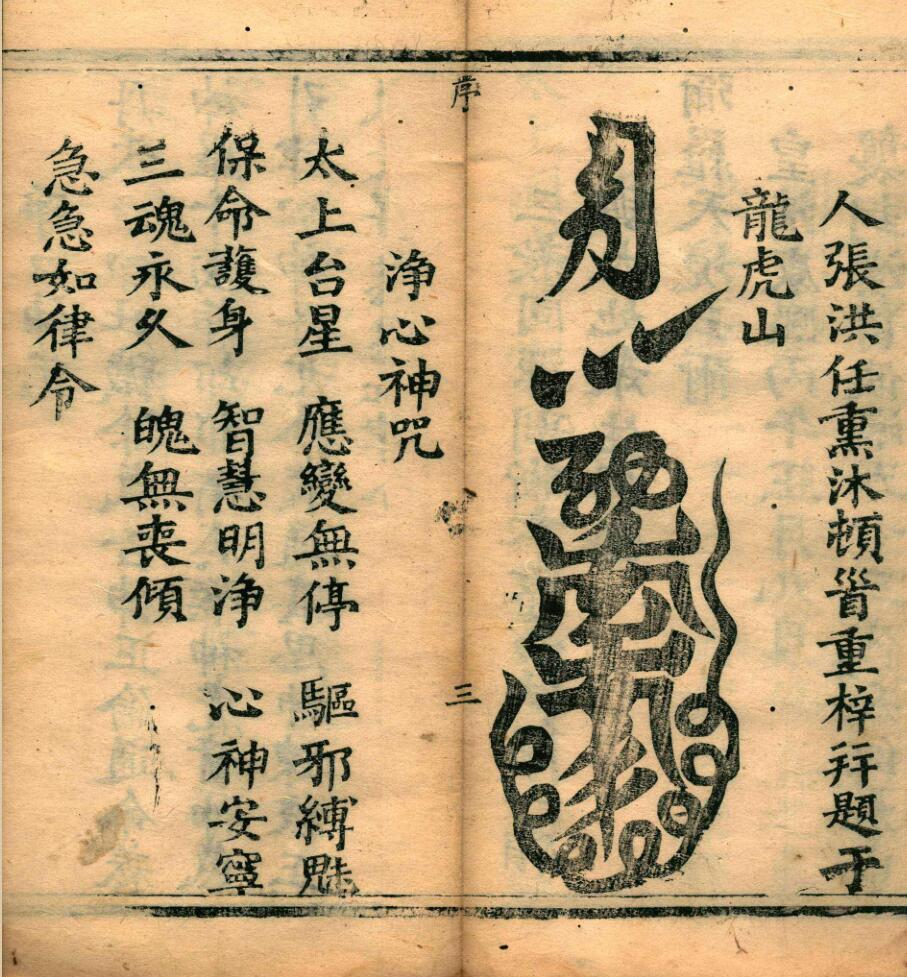 人張洪任熏沐頓首重梓并題于
龍虎山
序
三
淨心神咒
太上台星 應變無停 驅邪縛魅
保命護身 智慧明淨 心神安寧
三魂永久 魄無喪傾
急急如律令